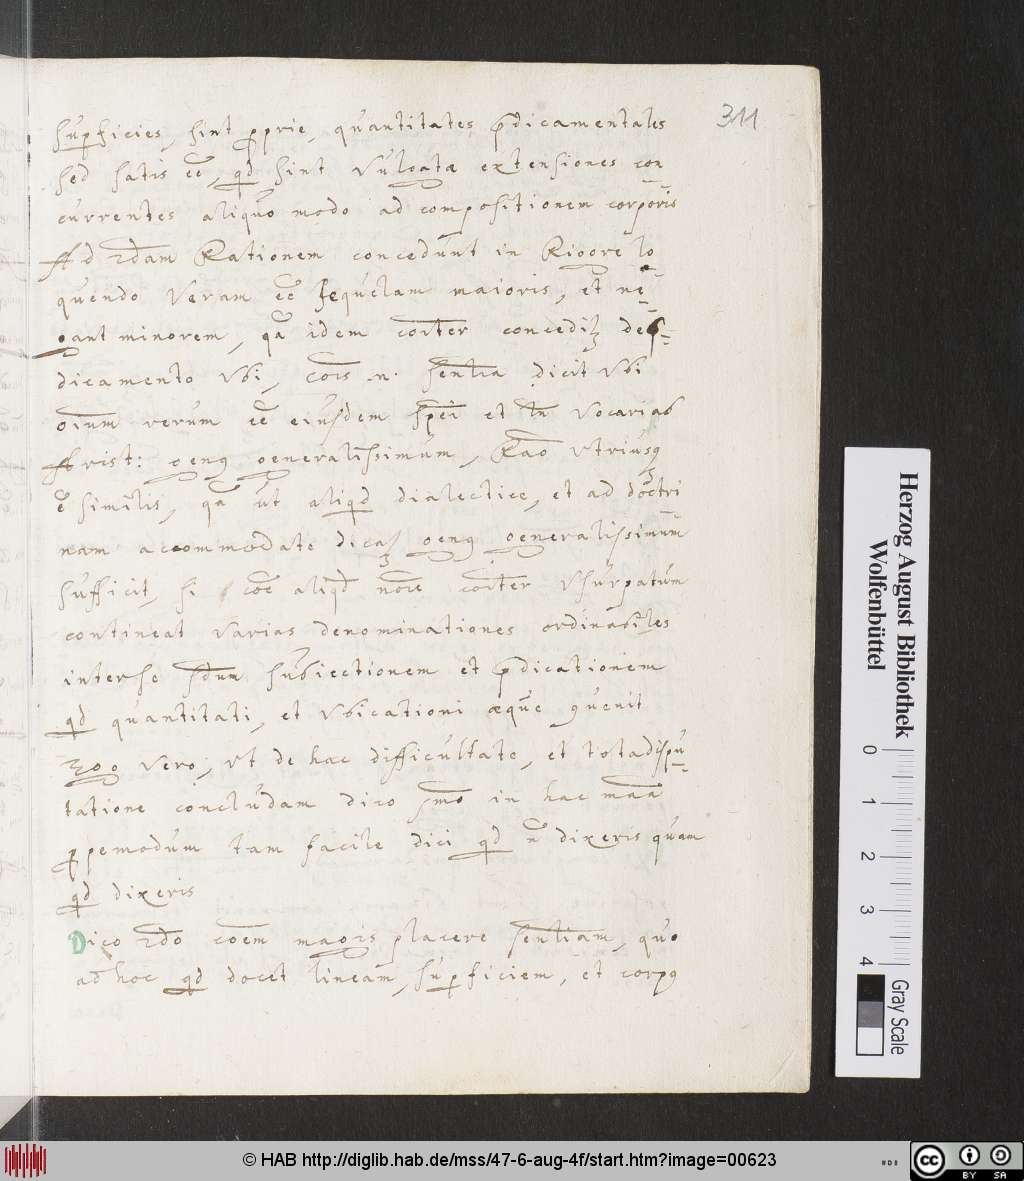 311
supficies, sint pprie, quantitates pdicamentales
sed satis eē, qd sint vulgatæ extensiones con
currentes aliquo modo ad compositionem corporis
Ad 2dam Rationem concedunt in Rigore lo
quendo veram eē sequelam maioris, et ne
gant minorem, qā idem coīter concedit de
dicamento Vbi, cōis .n. sentīa dicit Vbi
oīum rerum eē eiusdem spēi et tn̄ vocarias
Arist: geng generalissimum, Rāo vtriusq
ē similis, qā ut aliqd dialectice, et ad doctri
nam accommodate dicat geng generalissimum
sufficit, si cōe aliqd nōīe coīter vsurpatum
contineat varias denominationes ordinabiles
interse sdum subiectionem et pdicationem
qd quantitati, et Vbicationi æque 9uenit
Ego vero, vt de hac difficultate, et tota dispu
tatione concludam dico pmo in hac māā
ppemodum tam facile dici qd n̄ dixeris quam
qd dixeris
Dico 2do cōem magis placere sentīam, quo
ad hoc qd docet lineam, supficiem, et corpg
Herzog August Bibliothek
Wolfenbüttel
0 1 2 3 4
Gray Scale
© HAB http://diglib.hab.de/mss/47-6-aug-4f/start.htm?image=00623
cc BY SA